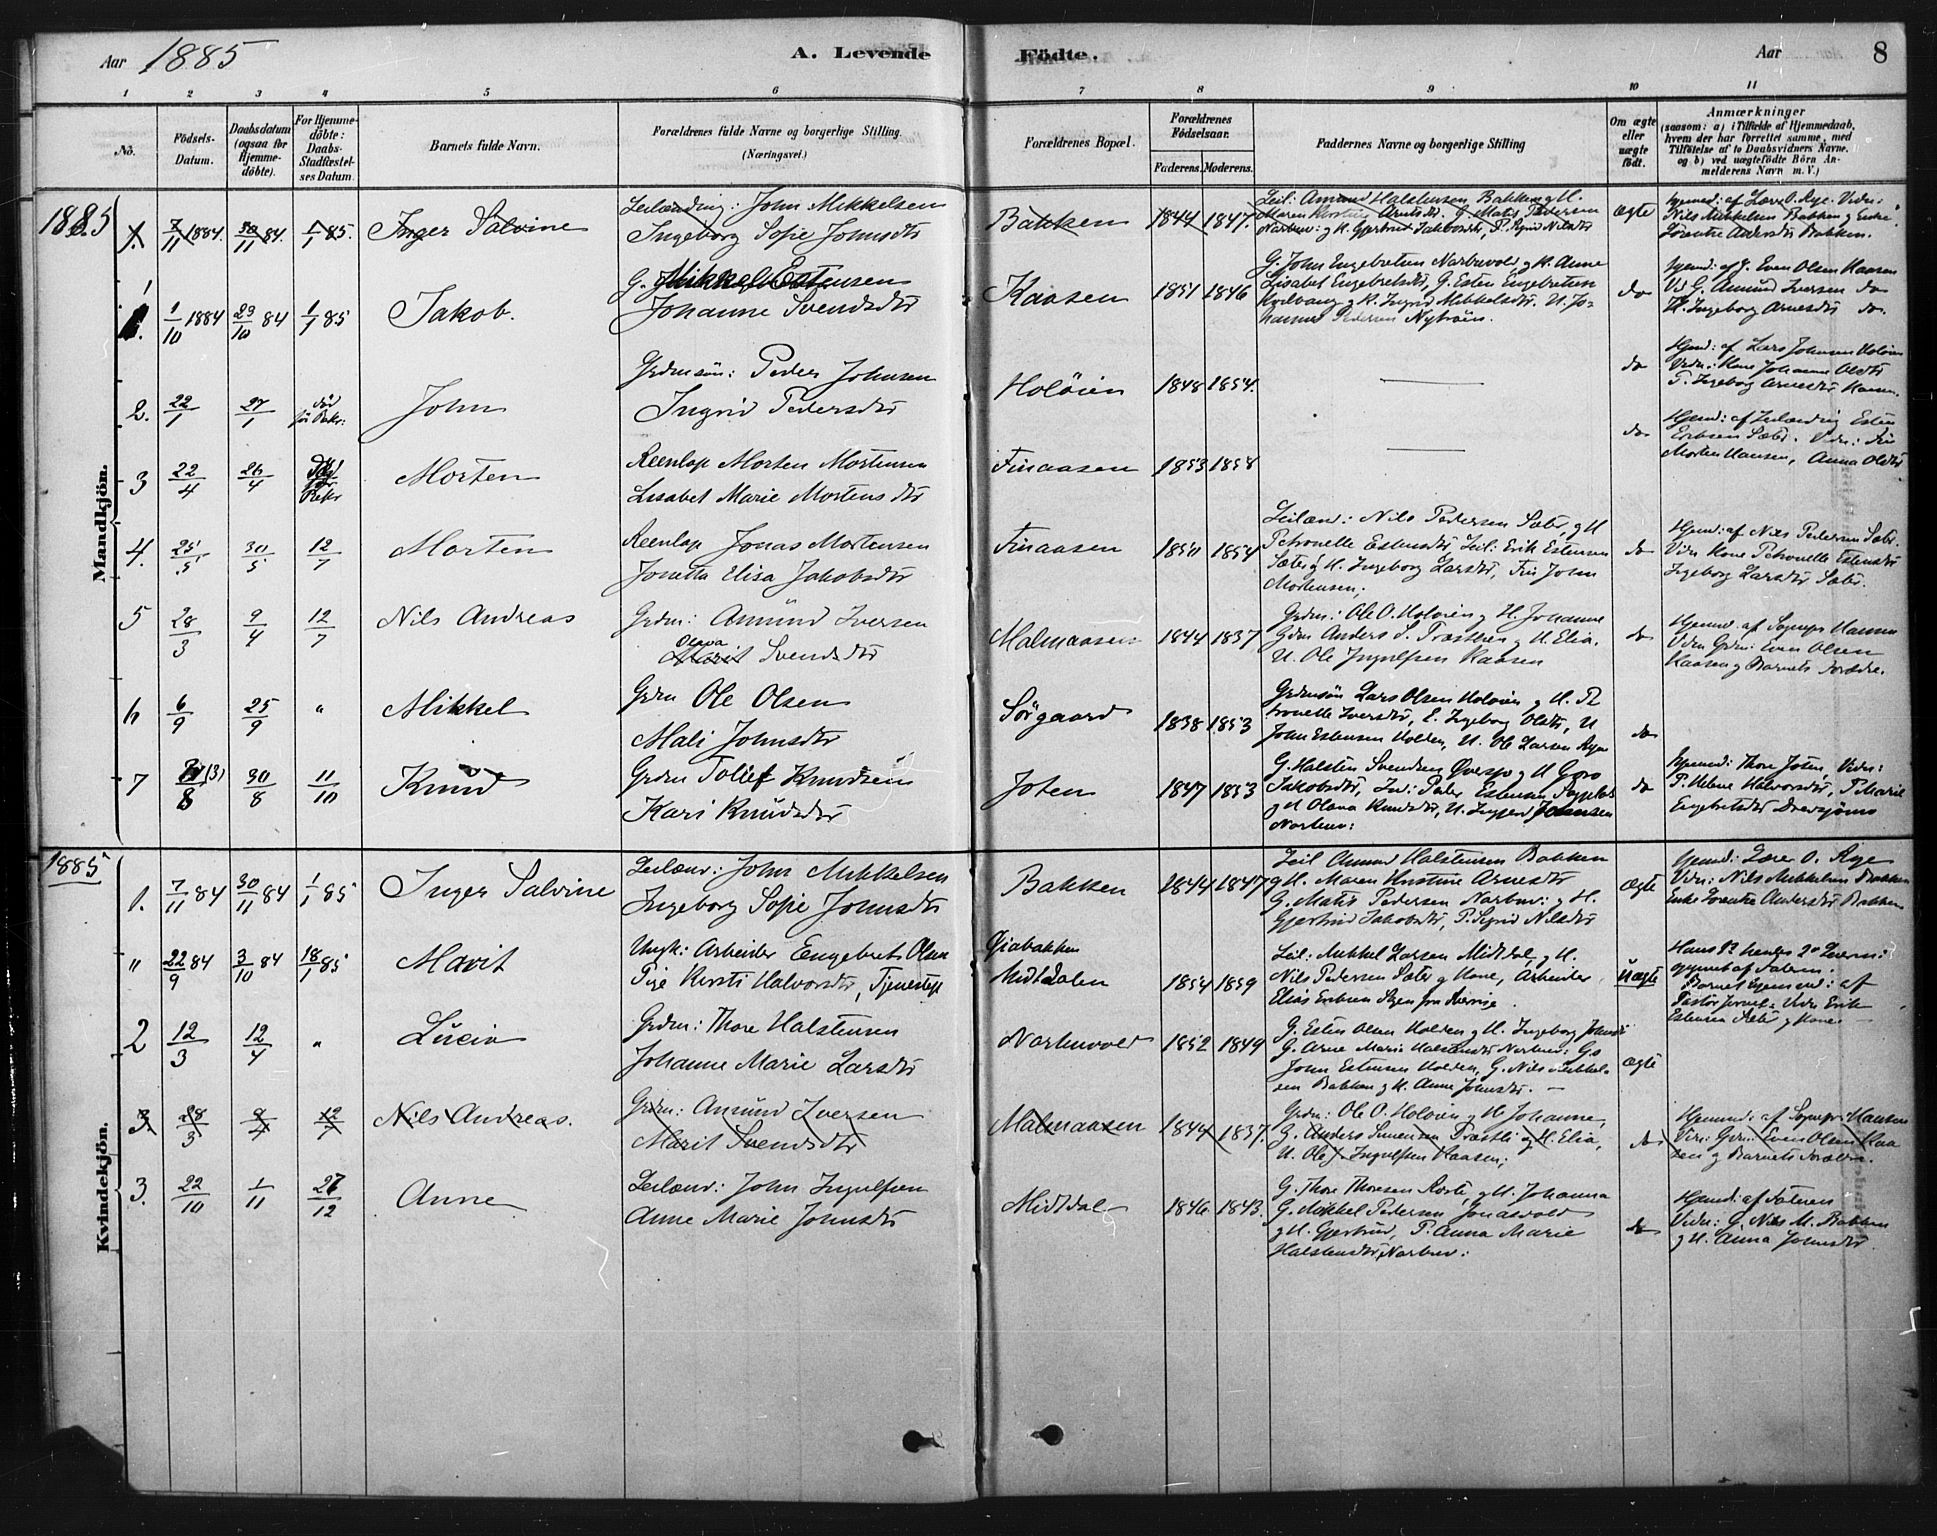 Aar 1885 A. Levende Födte. Aar 8
1 2 3 4 5 6 7 8 9 10 11
No. Födsels-Datum. Daabsdatum (ogsaa for Hjemmedöbte). For Hjemmedöbte: Daabs-Stadfæstelses Datum. Barnets fulde Navn. Forældrenes fulde Navne og borgerlige Stilling. (Næringsvei.) Forældrenes Bopæl. Forældrenes Födselsaar. Faderens. Moderens. Faddernes Navne og borgerlige Stilling Om ægte eller uægte födt. Anmærkninger (saasom: a) i Tilfælde af Hjemmedaab, hvem der har forrettet samme, med Tilföielse af to Daabsvidners Navne. og b) ved uægtefödte Börn Anmelderens Navn m. V.)
Mandkjön.
1885
1. 7/11 1884. 30/11 84. 1/1 85. Inger Salvine
Leilænding: John Mikkelsen
Ingeborg Sofie Johnsdtr
Bakken 1844 1847.
Leil: Amund Halstensen Bakken og H.
Maren Kirstine Arnesdtr. G. Matis Pedersen
Narbuv: og H. Gjertrud Jakobsdtr, P. Sigrid Nilsdtr
ægte
Hjemmed: af Lærer O. Rye. Vidn:
Nils Mikkelsen Bakken og Enke
Lorentze Andersdtr Bakken.
1. 1/10 1884 29/10 84 1/1 85 Jakob.
G. Mikkel Estensen
Johanne Svendsdtr
Kaasen 1851 1846
G. John Engebretsen Narbuvold og H. Anne
Lisabet Engebretsdtr, G. Esten Engebretsen
Kvilvang og H. Ingrid Mikkelsdtr. U. Jo-
hannes Pedersen Nytröen.
do
Hjemd: af G. Even Olsen Kaasen
Vid G. Amund Iversen do
H. Ingeborg Arnesdtr do.
2. 22/1 27/1 död för Bekr: John
Grdmsön: Peder Johnsen
Ingrid Pedersdtr
Holöien 1848 1854.
do
Hjemd: af Lars Johnsen Holöien
Vidn: Kone Johanne Olsdtr
P. Ingeborg Arnesdtr Kaasen.
3 22/4 26/4 Död för Bekr Morten
Reenlap Morten Mortensen
Lisabet Marie Mortensdtr
Finaasen 1853 1858
do
Hjemd: af Leilænding Esten
Eriksen Sæter. Vidn: Fin
Morten Hansen, Anna Olsdtr
4. 25/5 30/5 12/7 Morten
Reenlap Jonas Mortensen
Jonetta Elisa Jakobsdtr
Finaasen 1850 1854
Leilænd: Nils Pedersen Sæter, og H
Petronelle Estensdtr, Leil: Erik Estensen
Sæter og H. Ingeborg Larsdtr, Fin John
Mortensen;
do
Hjemd: af Nils Pedersen Sæter.
Vidn Kone Petronelle Estensdtr
Ingeborg Larsdtr Sæter.
5 28/3 9/4 12/7 Nils Andreas
Grdm: Amünd Iversen
Olava
Marit Svendsdtr
Malmaasen 1844 1837
Grdm: Ole O. Holöien og H. Johanne
Grdm Anders S. Træthli og H. Elia.
U. Ole Ingulfsen Kaasen
do
Hjemmd. af Sognepr Hansen
Vidn Grdm: Even Olsen
Kaasen og Barnets Forældre.
6 6/9 25/9 " Mikkel
Grdm Ole Olsen
Mali Johnsdtr
Sörgaard 1838 1853
Grdmsön Lars Olsen Holöien og H. Pe
tronelle Iversdtr, E. Ingeborg Olsdtr, U
John Estensen Holden, U. Ole Larsen Ryen
do
7 8 30/8 11/10 Knud
Grdm Tollef Knudsen
Kari Knudsdtr
Joten 1847 1853
G. Halsten Svendsen Översjo og H Goro
Jakobsdtr, Ind: Peder Estensen
og H Olava Knudsdtr, U. Ingjerd Johnsen
Narbuv:
do
Hjemmd: Thore Joten, Vidn:
P. Helene Halvorsdtr, P. Marie
Engebretsdtr Dredsjömo
Kvindekjön.
1885
1. 7/11 84 30/11 84 1/1 85 Inger Salvine
Leilænd: John Mikkelsen
Ingeborg Sofie Johnsdtr
Bakken 1844 1847
Leil Amund Halstensen Bakken
og H. Maren Kristine Arnesdtr
G. Matis Pedersen Narbuv: og H.
Gjertrud Jakobsdtr, P. Sigrid Nilsdtr
ægte
Hjemd: Lærer O. Rye
Vidn: Nils Mikkelsen Bakken
Enke Lorentze Andersdtr Bakken
" 22/9 84 3/10 84 18/1 85 Marit
Ungk: Arbeider Engebret Olsen
Pige Kersti Halvorsdtr, Tjenestepi
Öiabakken
Midtdalen 1854 1859
Leil: Mikkel Larsen Midtdal og H.
Nils Pedersen Sæter og Kone, Arbeider
Elias Eriksen Sæter fra
uægte
Hans 1ste hendes 2det Leierm:
opgivet af Faderen.
Barnet Hjemmd: af
Pastor Vidn Erik
Estensen Sæter og Kone
2 12/3 12/4 " Lucia
Grdm: Thore Halstensen
Johanne Marie Larsdtr
Narbuvold 1852 1849
G. Esten Olsen Holden og H. Ingeborg Johnsdtr
G. Arne Marie Halstensdtr Narbuv: Gs
John Estensen Holden, G. Nils Mikkel-
sen Bakken og H. Anne Johnsdtr. —
ægte
3. 28/3 9/4 12/7 Nils Andreas.
Grdm: Amünd Iversen
Marit Svendsdtr
Malmaasen 1844 1837.
Grdm: Ole O. Holöien og H. Johanne,
G. Anders Simensen Træthli og H. Elia,
U. Ole Ingulfsen Kaasen;
do
Hjemmd: af Sognepr: Hansen
Vidn: Grdm: Even Olsen Kaa
sen og Barnets Forældre.
3. 22/10 1/11 27/12 Anne
Leilænd: John Ingulfsen
Anne Marie Johnsdtr
Midtdal 1846 1843.
G. Thore Thoresen Röste, og H. Johanna
G. Mikkel Pedersen Jonasvold
og H. Gjertrud, P. Anna Marie
Halstensdtr, Narbuv:
do
Hjemd: af Faderen
Vidn: G. Nils M. Bakken
og H. Anna Johnsdtr.